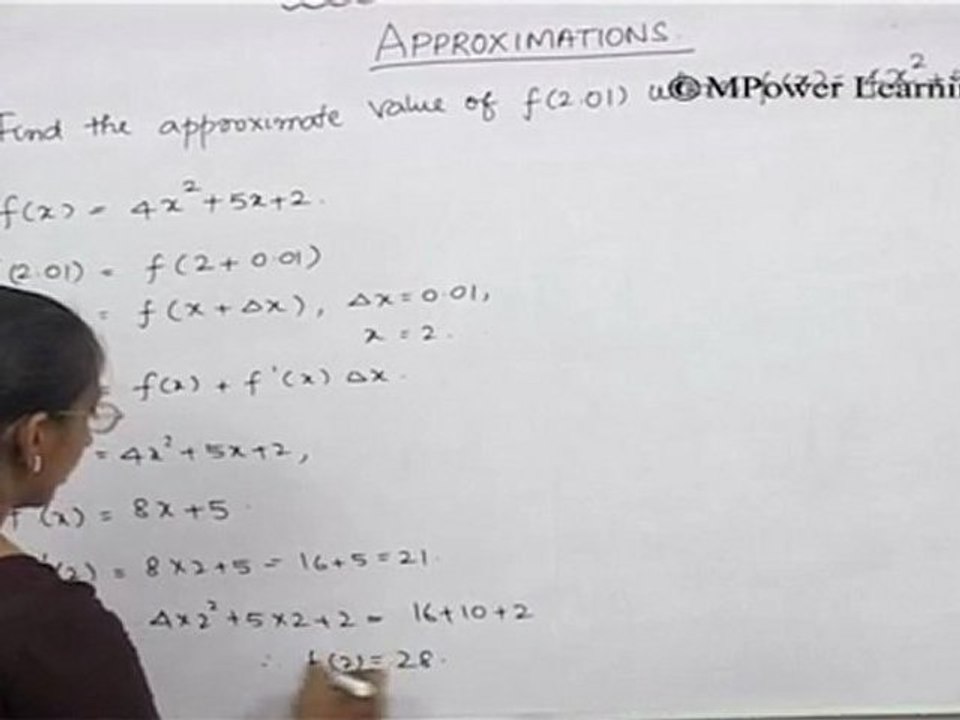 APPROXIMATIONS.
Find the approximate value of f(2.01)
© MPower Learni
f(x) = 4x² + 5x + 2.
(2.01) = f(2 + 0.01)
= f(x + Δx), Δx = 0.01,
x = 2.
= f(x) + f'(x) Δx.
= 4x² + 5x + 2,
f'(x) = 8x + 5.
'(2) = 8 × 2 + 5 = 16 + 5 = 21.
4 × 2² + 5 × 2 + 2 = 16 + 10 + 2
∴ f(2) = 28.